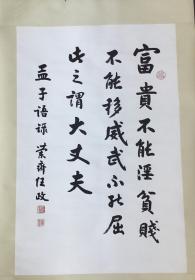 富貴不能淫貧賤
不能移威武不能屈
此之謂大丈夫
孟子语録 蘭齋任政